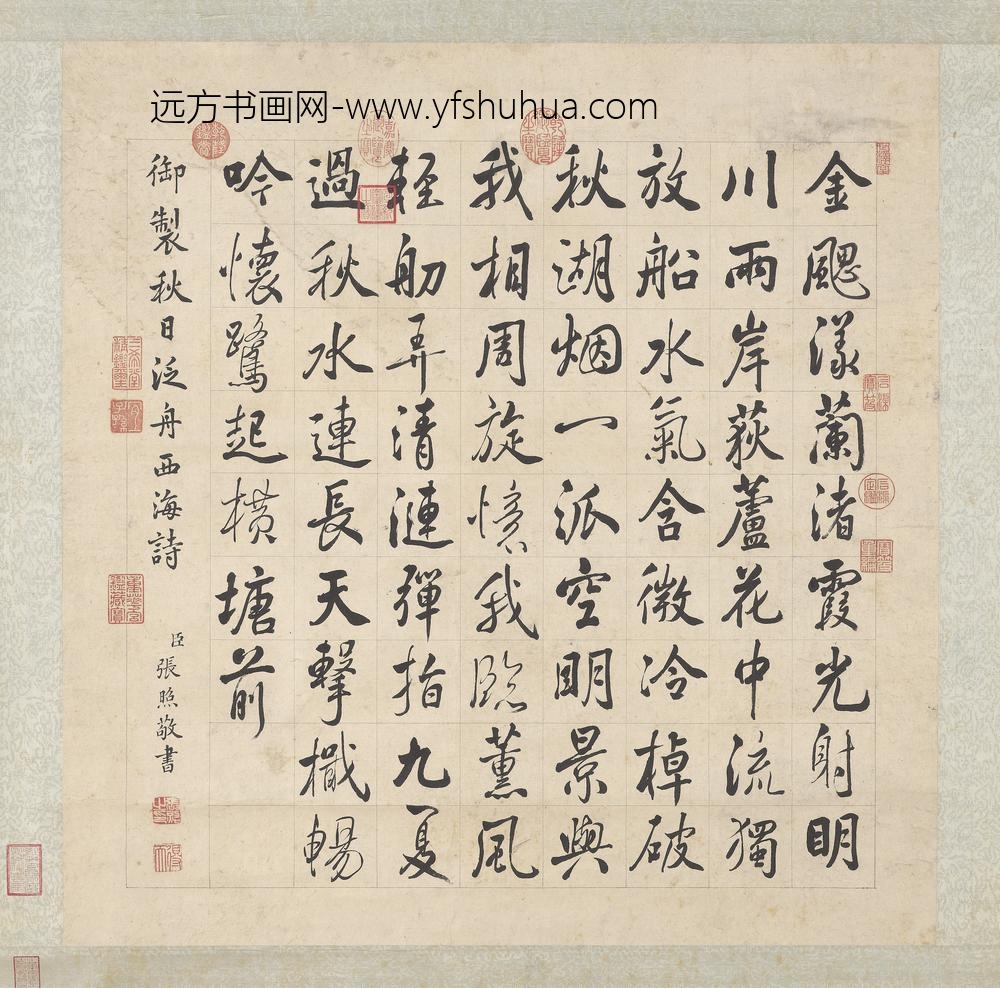 远方书画网-www.yfshuhua.com
金颸漾蘭渚霞光射明
川兩岸荻蘆花中流獨
放船水氣含微冷棹破
秋湖烟一派空明景與
我相周旋憶我臨薰風
輕舠弄清漣彈指九夏
過秋水連長天擊檝暢
吟懷鷺起橫塘前
御製秋日泛舟西海詩
臣張照敬書